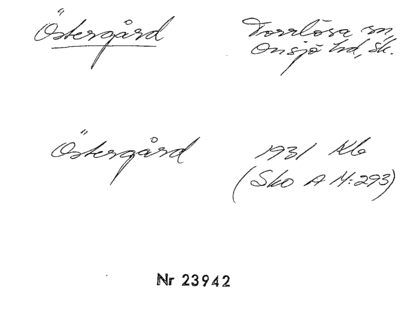 Östergård
Torrlösa sn,
Onsjö hd, Sk.
Östergård
1931 Kb
(Sko A M:293)
Nr 23942